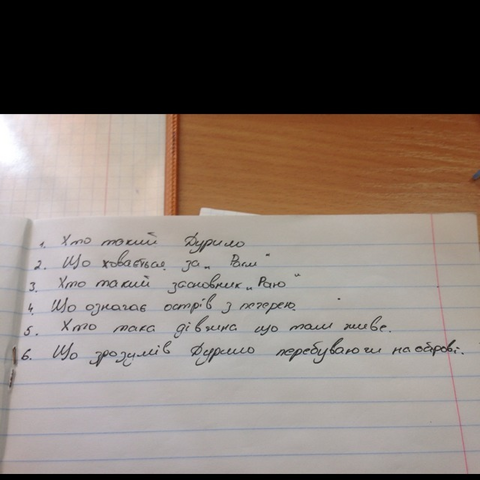 1. Хто такий Дурило
2. Що ховається за „Раєм"
3. Хто такий засновник „Раю"
4. Що означає острів з печерею.
5. Хто така дівчина що там живе.
6. Що зрозумів Дурило перебуваючи на острові.